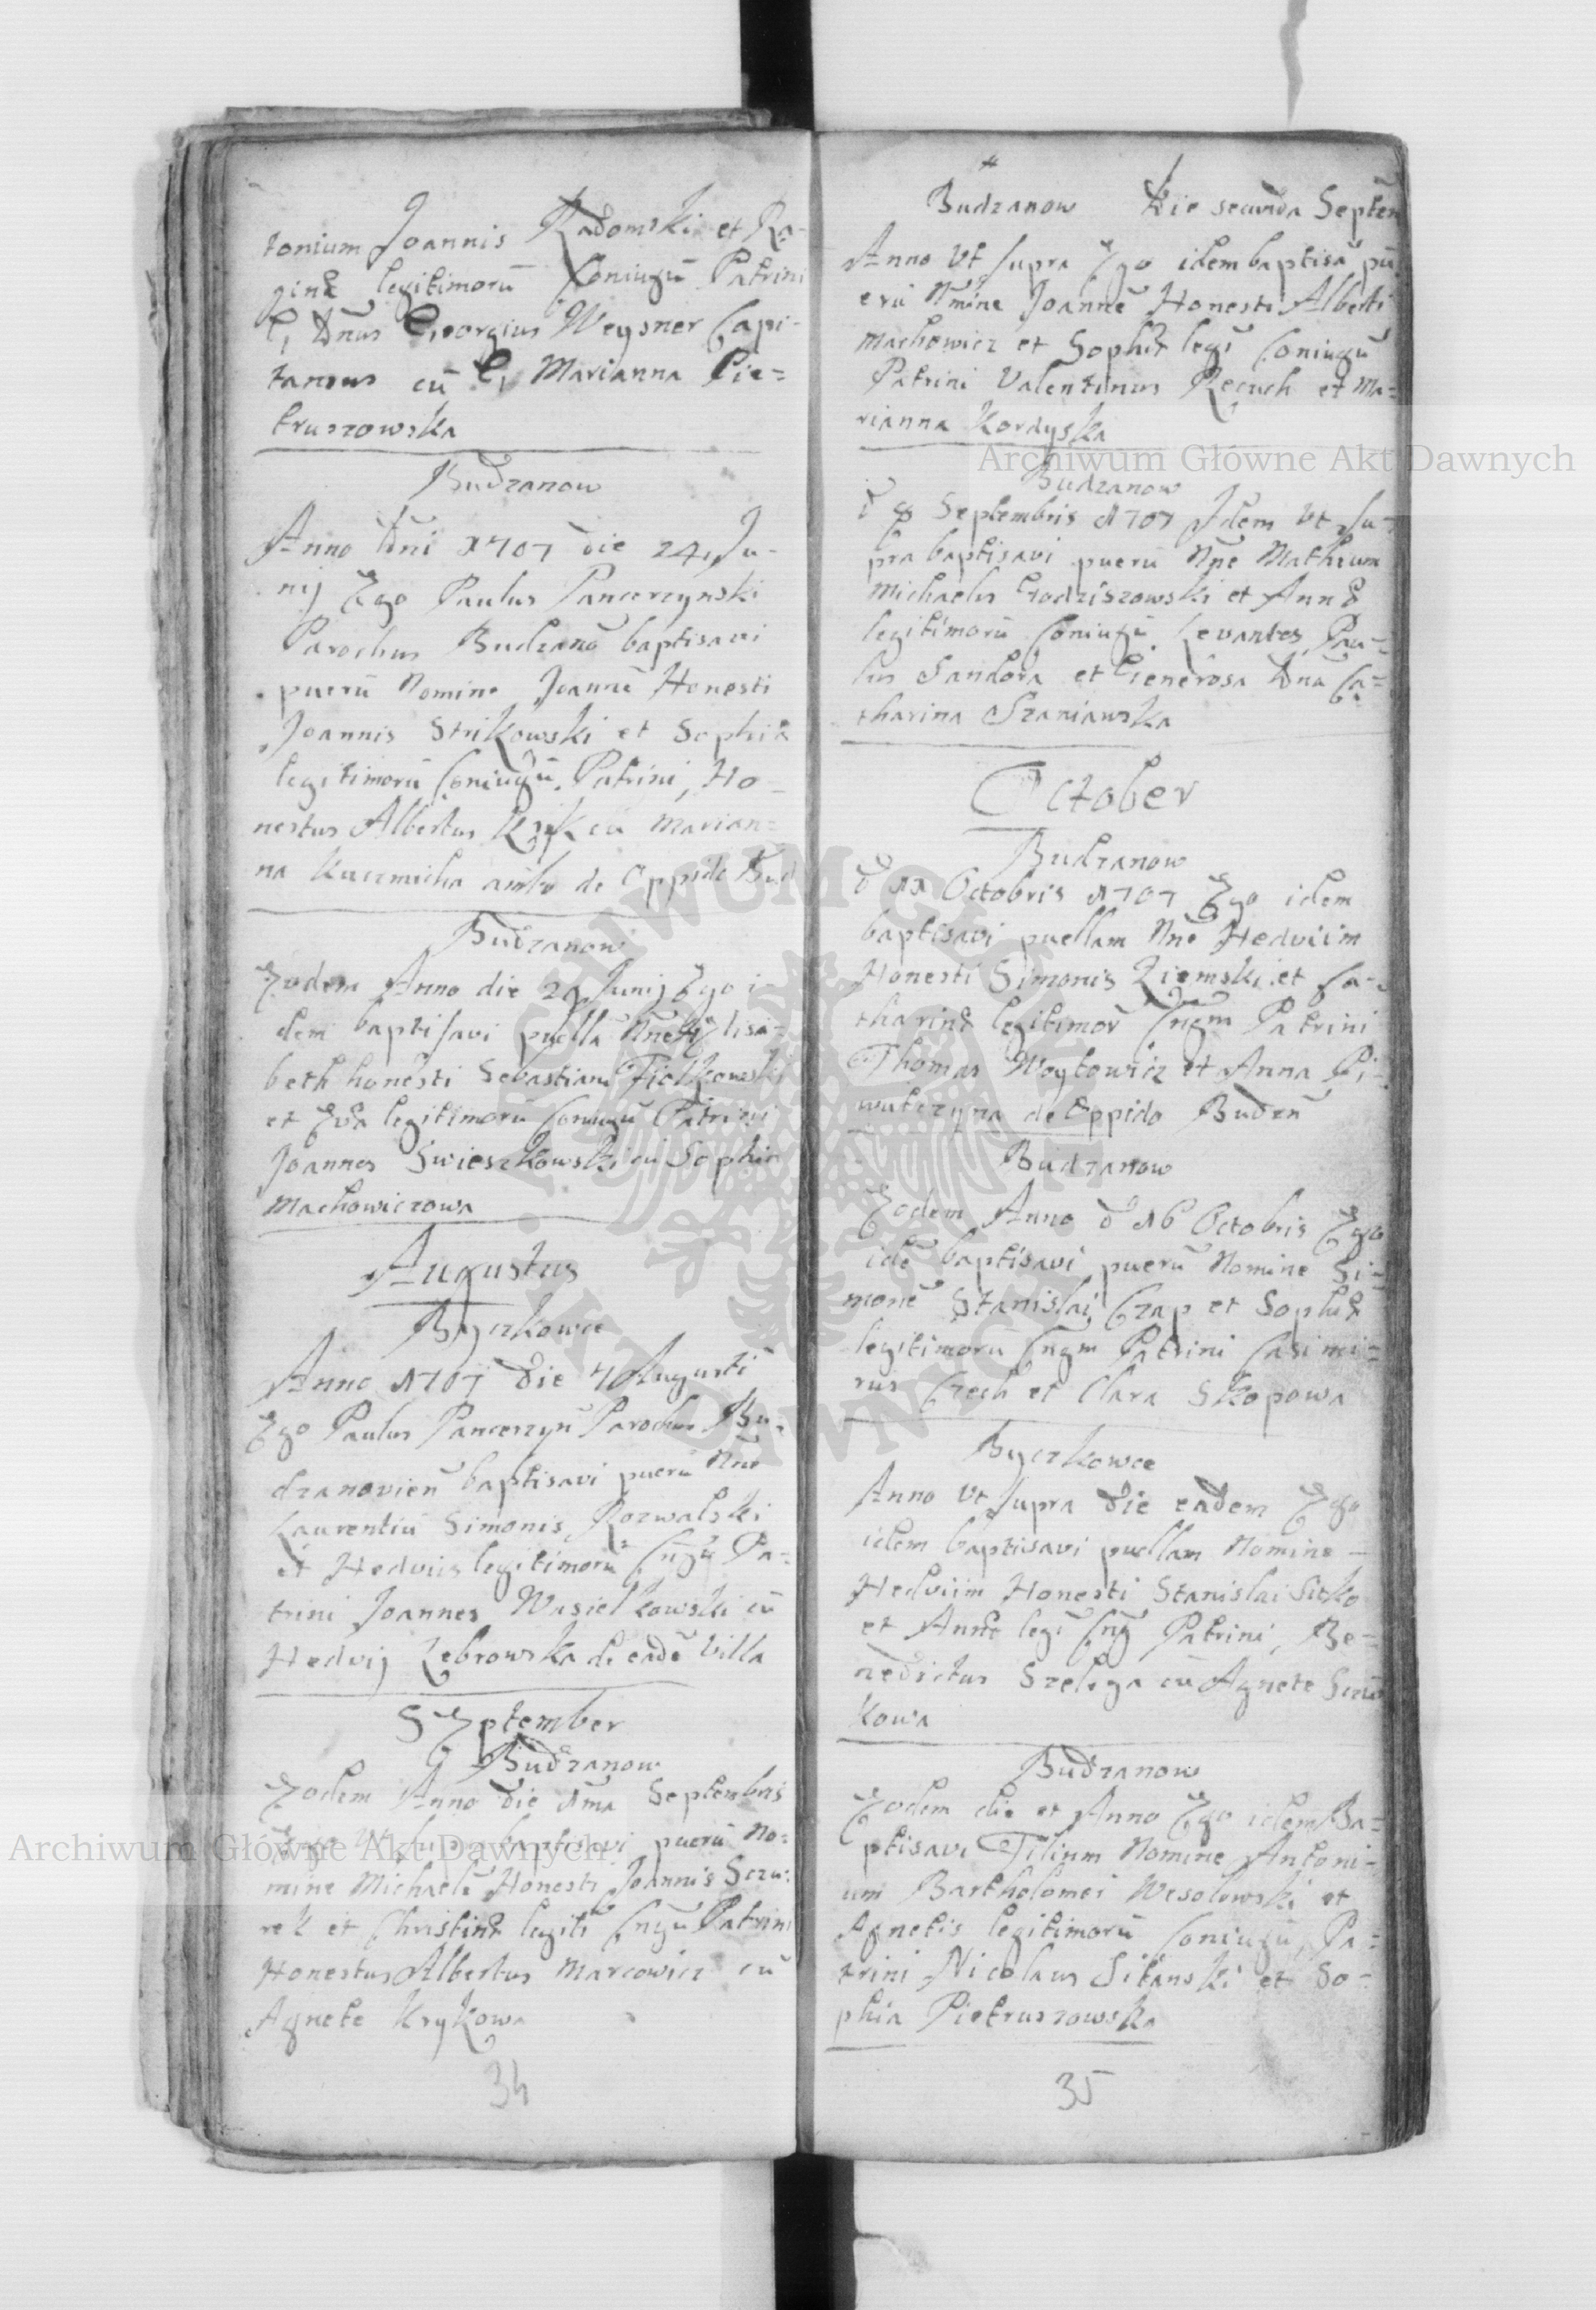 tonium Joannis Radomski et Re-
ginæ legitimorū Coniugū Patrini
G, Dn̄us Georgius Weysner Capi-
taneus cū G, Marianna Pie=
truszowska
Budzanow
Anno Dn̄i 1707 die 24, Ju-
nij Ego Paulus Pancerzynski
Parochus Budzano baptisavi
puerū Nomine Joannē Honesti
Joannis Strikowski et Sophiæ
legitimorū Coniugū, Patrini, Ho-
nestus Albertus Kryk cū Marian=
na Kuczmicha ambo de Oppido Bud
Budzanow
Eodem Anno die Junij Ego i-
dem baptisavi puellā Nn̄e Elisa-
beth honesti Sebastiani Fialkowski
et Evæ legitimorū Coniugū Patrini
Joannes Swieszkowski cū Sophia
Machowiczowa
Augustus
Byczkowce
Anno 1707 Die 7 Augusti
Ego Paulus Pancerzyn̄ Parochus Bu-
dzanovien̄ baptisavi puerū Nn̄e
Laurentiū Simonis Rozwalski
et Hedviis legitimorū Cn̄gū Pa=
trini Joannes Wasielkowski cū
Hedvij Zebrowska de eadē Villa
SEptember
Budzanow
Eodem Anno Die 1ma Septembris
Ego Ut supra baptisavi puerū No=
mine Michaelē Honesti Joannis Sczu=
rek et Christinæ legiti Cn̄gū Patrini
Honestus Albertus Marcowicz cū
Agnete Krykowa
34
Budzanow Die secunda Septem
Anno Ut supra Ego idem baptisā pu
erū Nmine Joannē Honesti Alberti
Machowicz et Sophiæ legi Coniugū
Patrini Valentinus Recuch et Ma=
rianna Kordyska
Budzanow
d 8 Septembris 1707 Idem Ut Su-
pra baptisavi puerū Nn̄e Matheum
Michaelis Godziszowski et Annæ
legitimorū Coniugū, Levantes, Pau=
lus Sandora et Generosa Dna Ca=
tharina Szaniawska
October
Budzanow
d 11 Octobris 1707 Ego idem
baptisavi puellam Nn̄e Hedviim
Honesti Simonis Ziemski et Ca-
tharinæ legitimor Cn̄gm Patrini
Thomas Woytowicz et Anna Pi-
wułczyna de Oppido Budzn̄
Budzanow
Eodem Anno d 16 Octobris Ego
idē baptisavi puerū Nomine Si=
monē Stanislai Czap et Sophiæ
legitimorū Cn̄gm Patrini Casimi=
rus Czech et Clara Skopowa
Byczkowce
Anno Ut supra Die eadem Ego
idem baptisavi puellam Nomine -
Hedviim Honesti Stanislai Sitko
et Annæ legi Cn̄g Patrini, Be=
nedictus Szeliga cū Agnete Sczur
kowa
Budzanow
Eodem die et Anno Ego idem Ba=
ptisavi Filium Nomine Antoni-
um Bartholomei Wesolowski et
Agnetis legitimorū Coniugū, Pa=
trini Nicolaus Sitanski et So-
phia Pietruszowska
35
Archiwum Główne Akt Dawnych
Archiwum Główne Akt Dawnych
ARCHIWUM GŁÓWNE AKT DAWNYCH